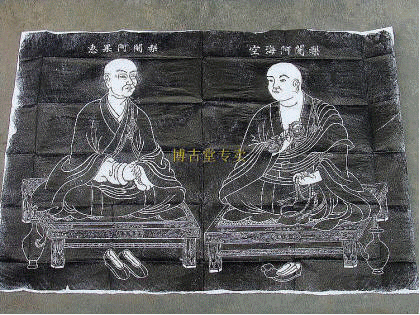 惠果阿闍梨
空海阿闍梨
博古堂专卖